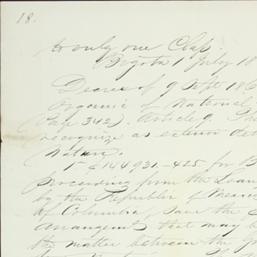 18.
to only one Class.
Bogota 1 July 18
Decree of 9 Sept 186
Organic of National
342). Article 9. The
recognize as extern
Nation.
1º £144921-425 for B
proceeding from the Loan
by the Republic of Mexico
of Colombia, save the
arrangements that may be
the matter between the